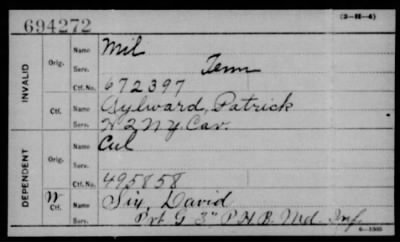 694272
(3-H-6)
INVALID
Orig.
Name Mil
Serv. Tenn
Ctf. No. 672397
Ctf.
Name Aylward, Patrick
Serv. H 2 N.Y. Cav.
DEPENDENT
Orig.
Name Cul
Serv.
Ctf. No. 495858
W
Ctf.
Name Six, David
Serv. Pvt G 3" P.H.B. Md. Inf.